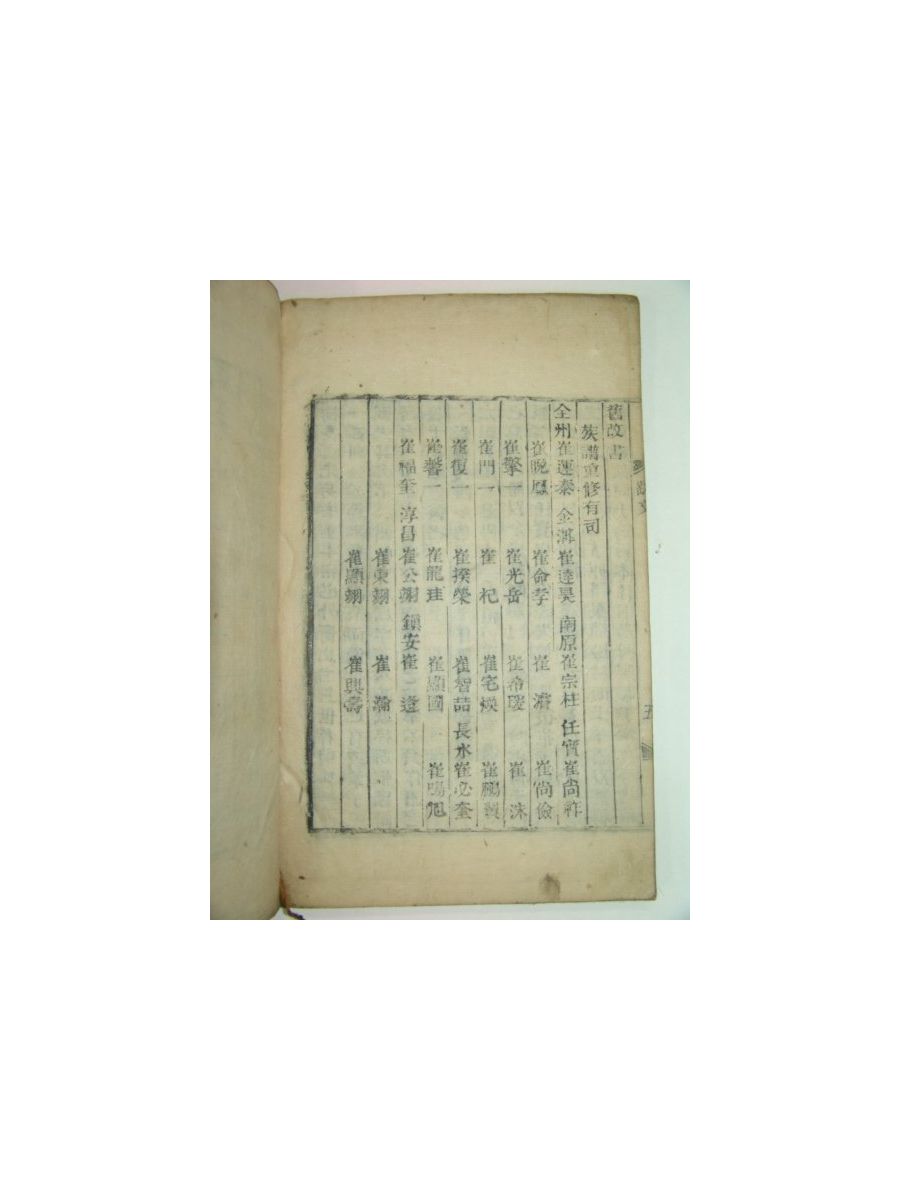 舊改書
族譜重修有司
全州 崔運泰 金溝 崔達昊 南原 崔宗柱 任實 崔尚祚
崔晩鳳 崔命孝 崔濟 崔尚儉
崔擎一 崔光岳 崔希瑗 崔沬
崔門一 崔杞 崔宅煥 崔鵬
崔復一 崔揆榮 崔智喆 長水 崔必奎
崔馨一 崔龍珪 崔顯國 崔鳴旭
崔福奎 淳昌 崔公翊 鎭安 崔三達
崔東翊 崔瀚
崔顯翊 崔興壽
五